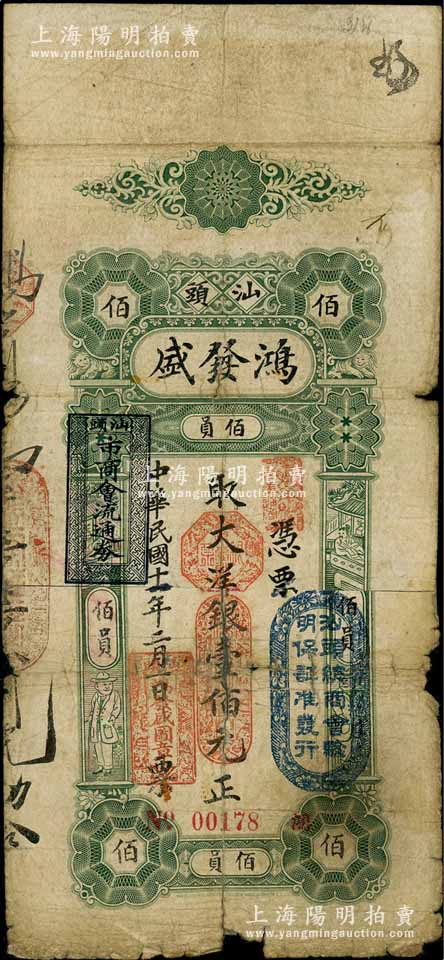 上海陽明拍賣
www.yangmingauction.com
佰
汕頭
佰
鴻發盛
佰員
憑票
取大洋銀壹佰元正
中華民國十一年二月一日
票
汕頭
市商會流通券
佰員
佰員
汕頭總商會驗
明保証准發行
№ 00178
佰
佰員
佰
上海陽明拍賣
www.yangmingauction.com
上海陽明拍賣
www.yangmingauction.com